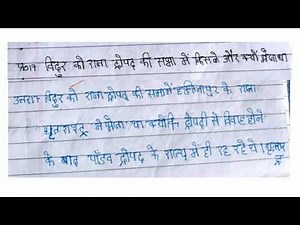 प्र01न विदुर को राजा द्रोपद की सभा में किसने और क्यों भेजा था
उत्तर01न विदुर को राजा द्रोपद की सभा में हस्तिनापुर के राजा
धृतराष्ट्र ने भेजा था क्योंकि द्रौपदी से विवाह होने
के बाद पाँडव द्रोपद के राज्य में ही रह रहे थे।